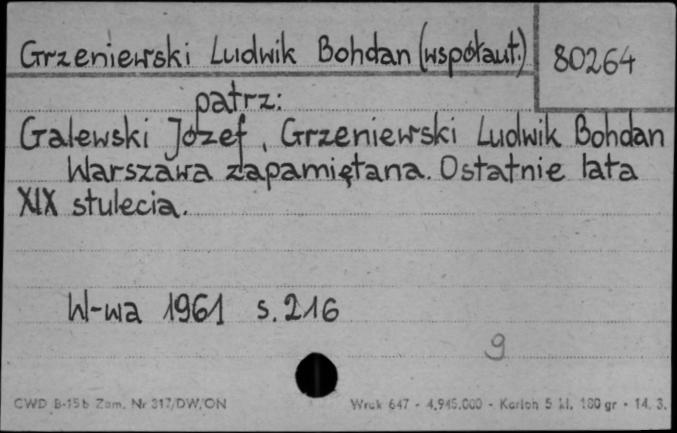 Grzeniewski Ludwik Bohdan (współaut.) 80264
patrz:
Galewski Józef, Grzeniewski Ludwik Bohdan
Warszawa zapamiętana. Ostatnie lata
XIX stulecia.
W-wa 1961 s. 216
9
CWD B-15b Zam. Nr 317/DW/ON Wrak 647 - 4.945.000 - Karton 5 kl. 180 gr - 14. 3.